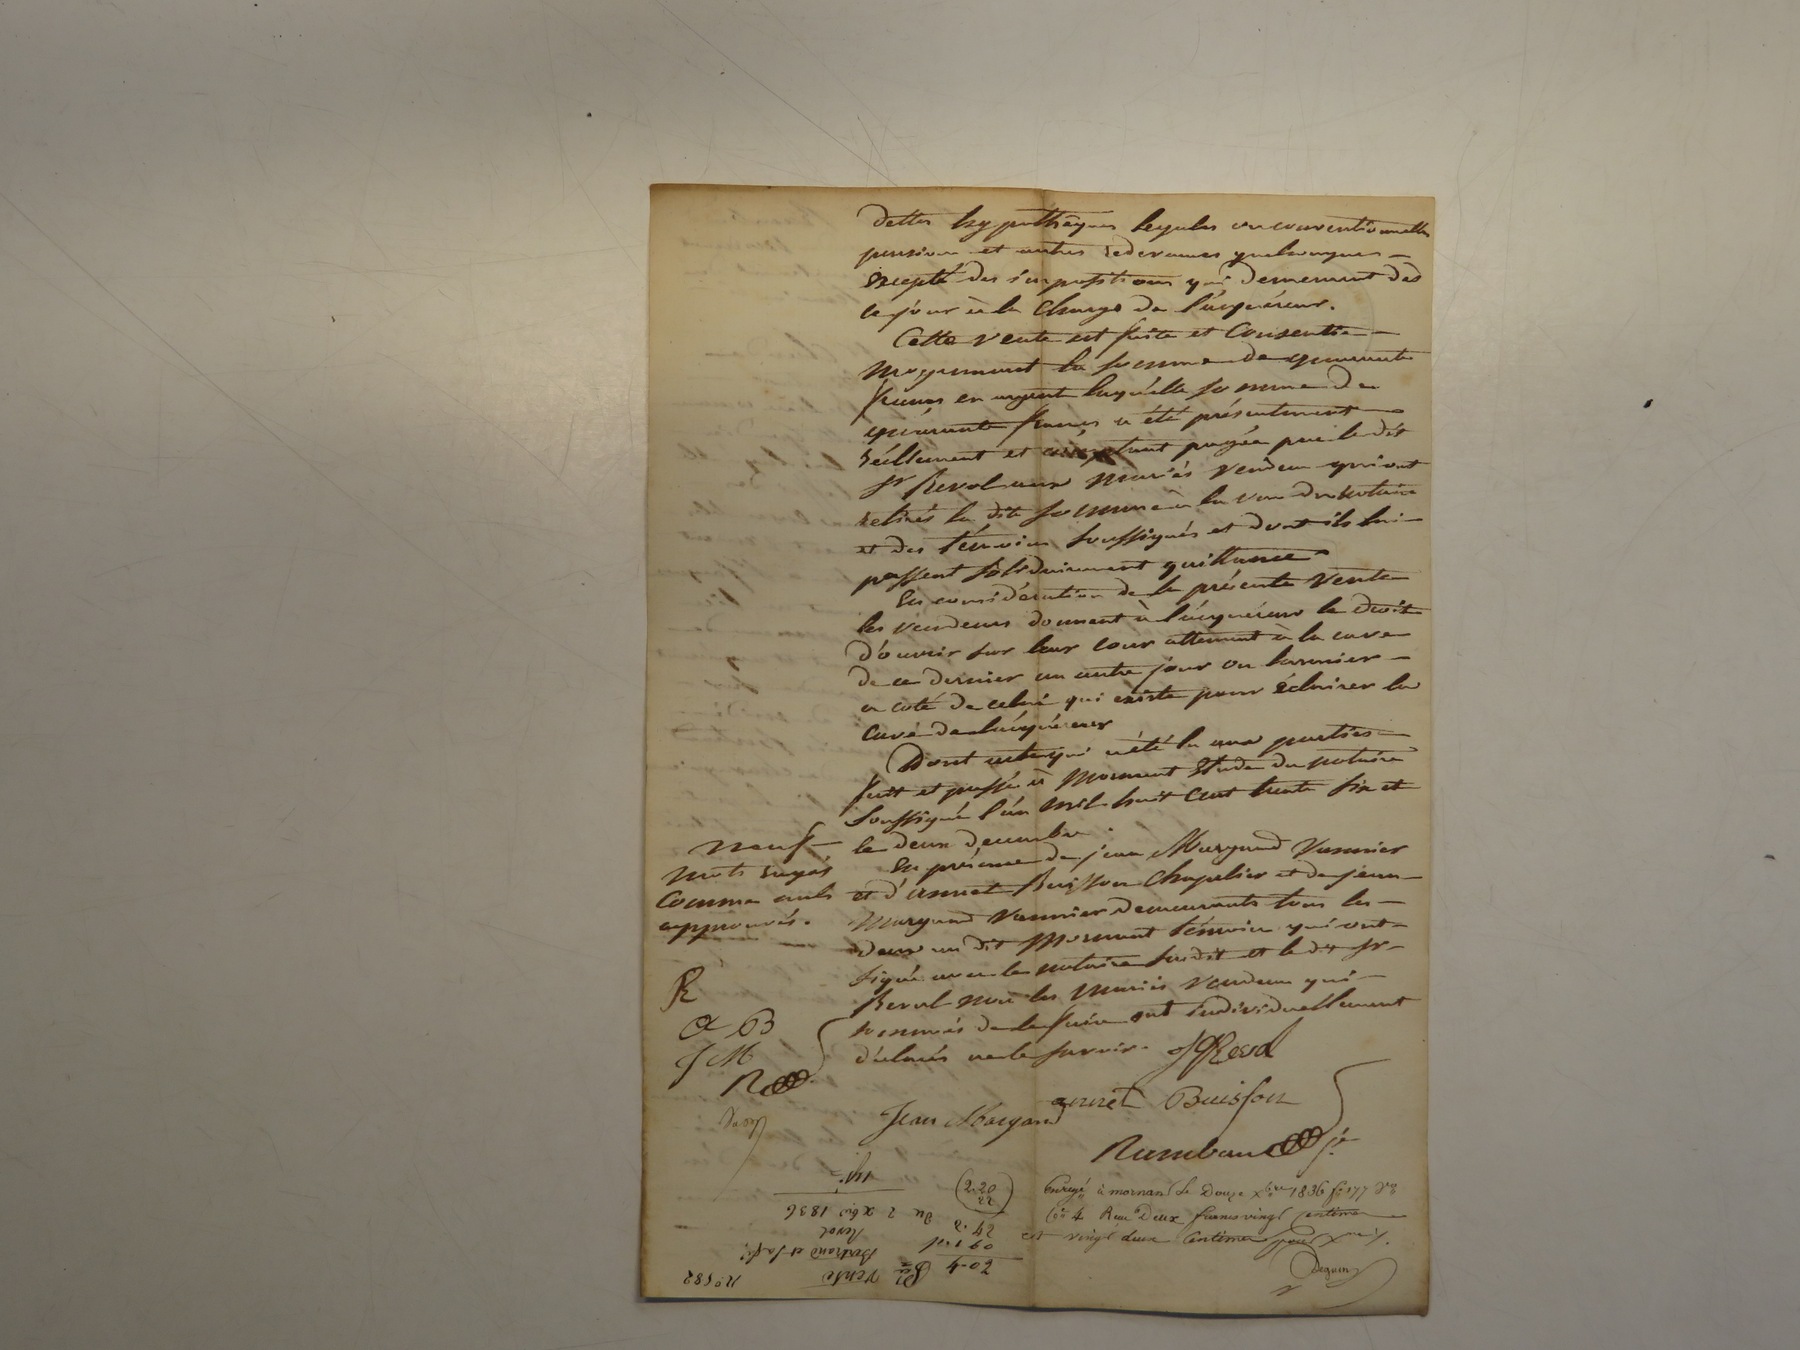 dettes hypothèques legales ou conventionnelles
pension et autres redevances quelconques —
Excepté des impositions qui demeurent dès
ce jour à la charge de l'acquéreur.
Cette vente est faite et Consentie —
moyennant la somme de quarante
francs en argent laquelle somme de
quarante francs a été présentement —
réellement et comptant payée par le dit
Sr Revol aux mariés vendeur qui ont
retirés la dite somme à la vue du notaire
et des témoins soussignés et dont ils lui —
passent solidairement quittance
En considération de la présente vente
les vendeurs donnent à l'acquéreur le droit
d'ouvrir sur leur cour attenant à la cave
de ce dernier un autre jour ou larmier —
a coté de celui qui existe pour éclairer la
cave de l'acquéreur
Dont acte qui a été lu aux parties —
fait et passé à Mornant Etude du notaire
soussigné l'an mil huit cent trente six et
le deux decembre.
En présence de jean Margand Vannier
et d'annet Buisson Chapelier et de jean —
Margand Vannier demeurants tous les —
deux au dit Mornant témoins qui ont —
signé avec le notaire susdit et le dit Sr —
Revol non les mariés vendeur qui —
sommés de le faire ont individuellement
déclarés ne le savoir.
neuf —
mots rayés
Comme nuls
approuvés.
R
a B
J M
R
JRevol
annet Buisson
Jean Margand
Rambaud
Enregé à mornant le Douze Xbre 1836 fo 177 Vo
Cen 4 Reçu Deux francs vingt centimes
et vingt deux Centimes pour Xme
Deguin
No 582
Vente
Bertrand et sa fe
Revol
du 2 Xbre 1836
20-4
2.20
22